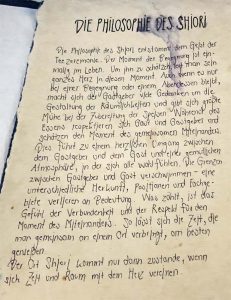 DIE PHILOSOPHIE DES SHIORI
Die Philosophie des Shiori entstammt dem Geist der
Teezeremonie. Der Moment der Begegnung ist ein-
malig im Leben. Um ihn zu schätzen, legt man sein
ganzes Herz in diesen Moment. Auch wenn es nur
bei einer Begegnung oder einem Abendessen bleibt,
macht sich der Gastgeber viele Gedanken um die
Gestaltung der Räumlichkeiten und gibt sich große
Mühe bei der Zubereitung der Speisen. Während des
Essens respektieren sich Gast und Gastgeber und
schätzen den Moment des gemeinsamen Miteinanders.
Dies führt zu einem herzlichen Umgang zwischen
dem Gastgeber und dem Gast und einer gemütlichen
Atmosphäre, in der sich alle wohlfühlen. Die Grenzen
zwischen Gastgeber und Gast verschwimmen - eine
unterschiedliche Herkunft, Positionen und Fachge-
biete verlieren an Bedeutung. Was zählt, ist das
Gefühl der Verbundenheit und der Respekt für den
Moment des Miteinanders. So lässt sich die Zeit, die
man gemeinsam an einem Ort verbringt, am besten
genießen.
Der Ort Shiori kommt nur dann zustande, wenn
sich Zeit und Raum mit dem Herz vereinen.